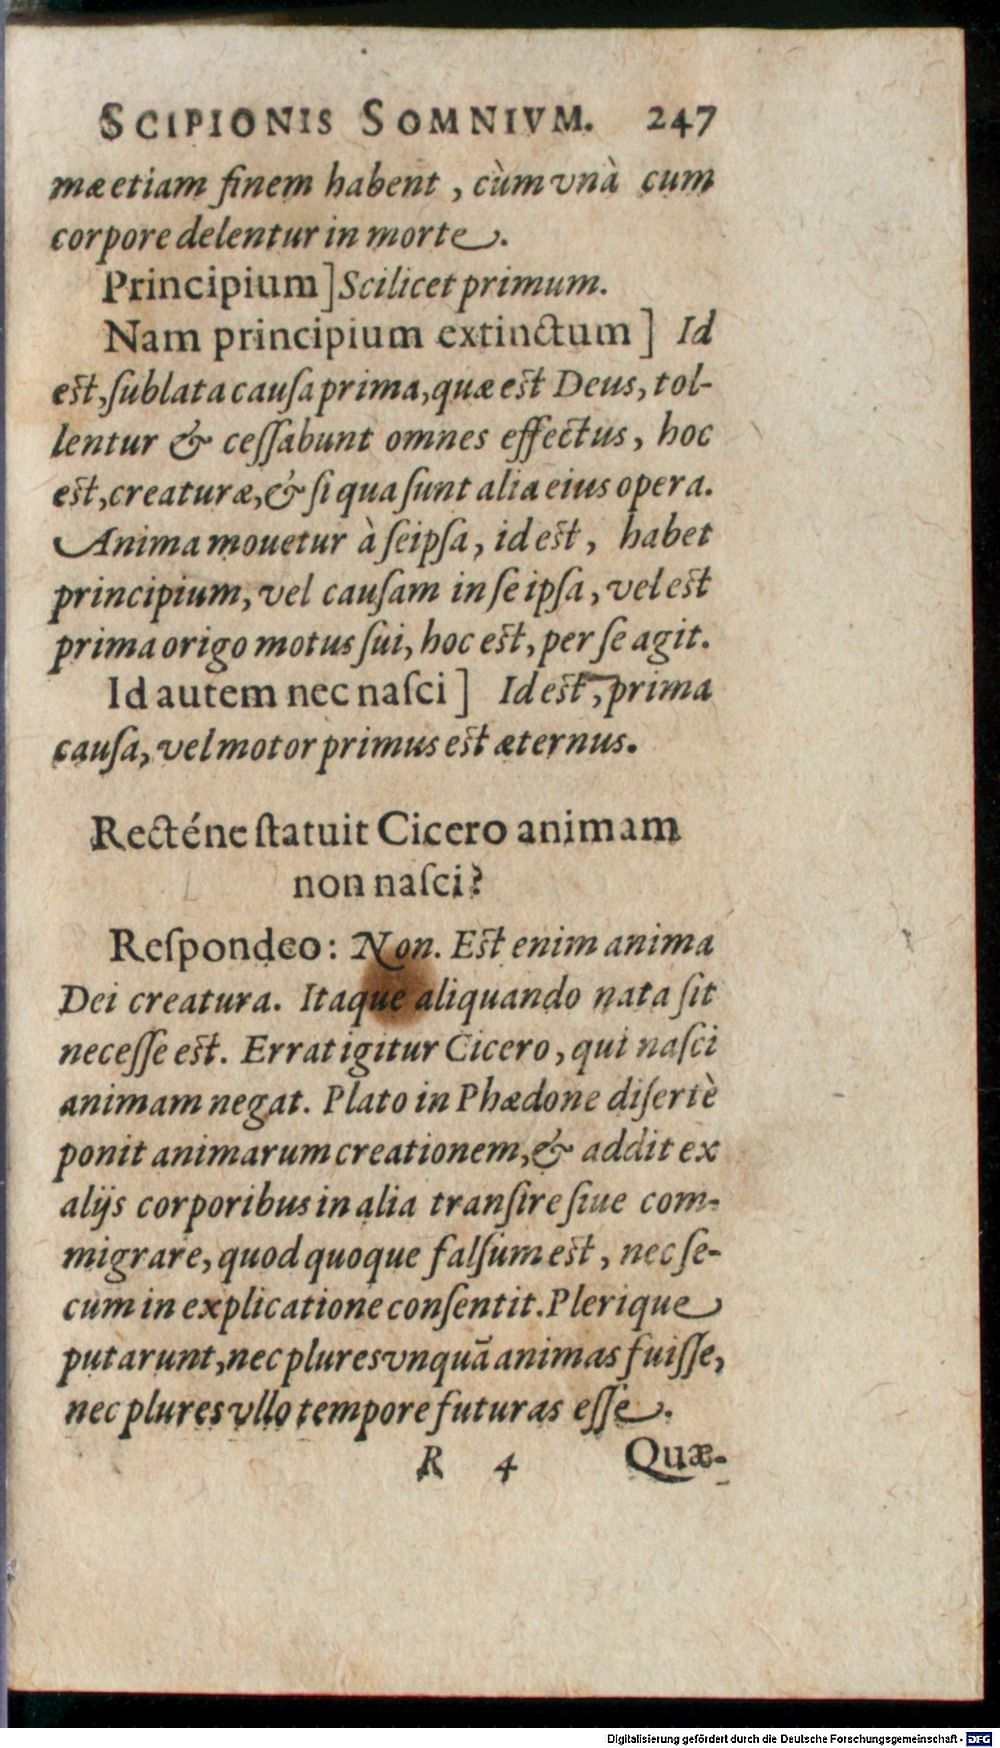 SCIPIONIS SOMNIVM. 247
mæ etiam finem habent, cùm vnà cum
corpore delentur in morte.
Principium] Scilicet primum.
Nam principium extinctum] Id
est, ſublata cauſa prima, quæ est Deus, tol-
lentur & ceſſabunt omnes effectus, hoc
est, creaturæ, & ſi qua ſunt alia eius opera.
Anima mouetur à ſeipſa, id est, habet
principium, vel cauſam in ſe ipſa, vel est
prima origo motus ſui, hoc est, per ſe agit.
Id autem nec naſci] Id est, prima
cauſa, vel motor primus est æternus.
Recténe ſtatuit Cicero animam
non naſci?
Reſpondeo: Non. Est enim anima
Dei creatura. Itaque aliquando nata ſit
neceſſe est. Errat igitur Cicero, qui naſci
animam negat. Plato in Phædone diſertè
ponit animarum creationem, & addit ex
alijs corporibus in alia tranſire ſiue com-
migrare, quod quoque falſum est, nec ſe-
cum in explicatione conſentit. Plerique
putarunt, nec plures vnquã animas fuiſſe,
nec plures vllo tempore futuras eſſe.
R 4 Quæ-
Digitalisierung gefördert durch die Deutsche Forschungsgemeinschaft - DFG